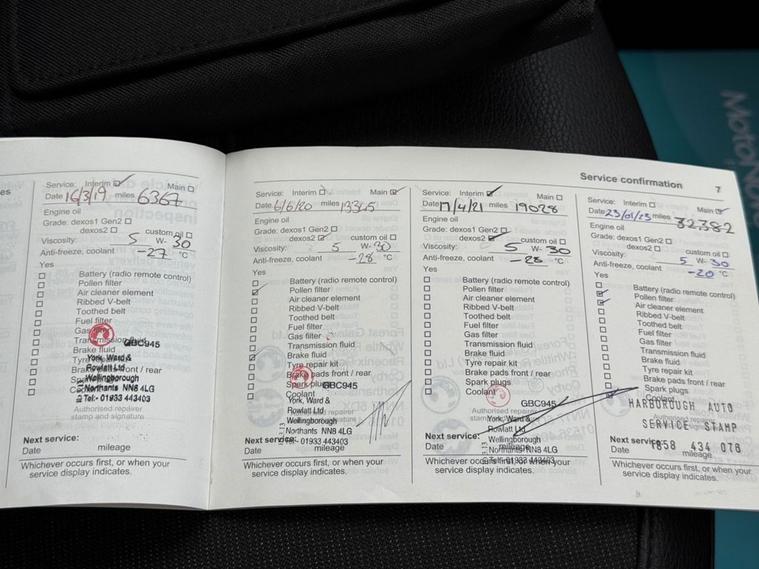 Service confirmation 7
es
Service: Interim ☑ Main ☐
Date 16/3/19 miles 6367
Engine oil
Grade: dexos1 Gen2 ☐
dexos2 ☐ custom oil ☐
Viscosity: 5 W- 30
Anti-freeze, coolant -27 °C
Yes
Battery (radio remote control)
Pollen filter
Air cleaner element
Ribbed V-belt
Toothed belt
Fuel filter
Gas
Transmission fluid
Brake fluid
Tyre repair kit
Brake pads front / rear
GBC945
York, Ward &
Rowlatt Ltd
Wellingborough
Northants NN8 4LG
Tel: 01933 443403
Authorised repairer
stamp and signature
Next service:
Date mileage
Whichever occurs first, or when your
service display indicates.
Service: Interim ☐ Main ☑
Date 6/6/20 miles 13345
Engine oil
Grade: dexos1 Gen2 ☐
dexos2 ☑ custom oil ☐
Viscosity: 5 W- 30
Anti-freeze, coolant -28 °C
Yes
Battery (radio remote control)
Pollen filter
Air cleaner element
Ribbed V-belt
Toothed belt
Fuel filter
Gas filter
Transmission fluid
Brake fluid
Tyre repair kit
Brake pads front / rear
Spark plugs
Coolant
GBC945
York, Ward &
Rowlatt Ltd
Wellingborough
Northants NN8 4LG
01933 443403
Next service:
Date mileage
Whichever occurs first, or when your
service display indicates.
Service: Interim ☑ Main ☐
Date 17/4/21 miles 19028
Engine oil
Grade: dexos1 Gen2 ☐
dexos2 ☑ custom oil ☐
Viscosity: 5 W- 30
Anti-freeze, coolant -28 °C
Yes
Battery (radio remote control)
Pollen filter
Air cleaner element
Ribbed V-belt
Toothed belt
Fuel filter
Gas filter
Transmission fluid
Brake fluid
Tyre repair kit
Brake pads front / rear
Spark plugs
Coolant
GBC945
Authorised repairer
stamp and signature
York, Ward &
Rowlatt Ltd
Wellingborough
Northants NN8 4LG
Tel: 01933 443403
Next service:
Date mileage
Whichever occurs first, or when your
service display indicates.
Service: Interim ☐ Main ☑
Date 23/01/23 miles 32382
Engine oil
Grade: dexos1 Gen2 ☐
dexos2 ☐ custom oil ☐
Viscosity: 5 W- 30
Anti-freeze, coolant -20 °C
Yes
Battery (radio remote control)
Pollen filter
Air cleaner element
Ribbed V-belt
Toothed belt
Fuel filter
Gas filter
Transmission fluid
Brake fluid
Tyre repair kit
Brake pads front / rear
Spark plugs
Coolant
HARBOROUGH AUTO
SERVICE STAMP
1858 434 078
Next service:
Date mileage
Whichever occurs first, or when your
service display indicates.